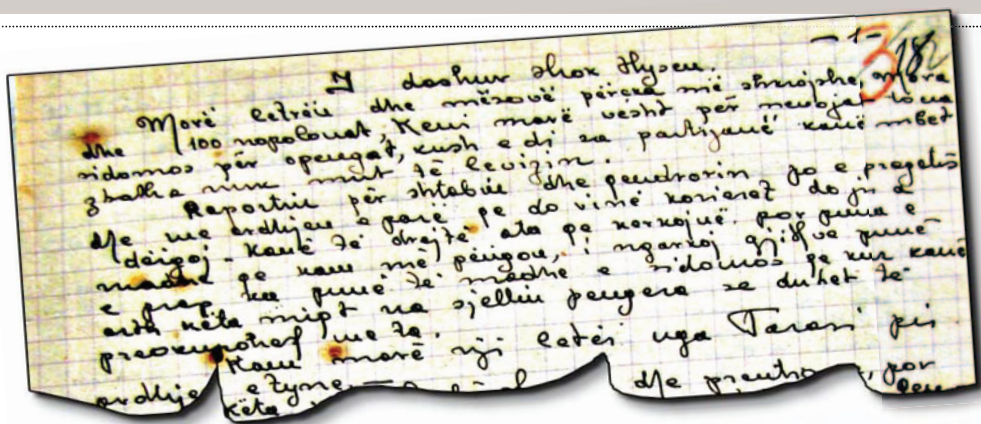 -1-
318
I dashur shok Hysen.
Morë letrën dhe mësovë përcka më shkrojshe, mora
dhe 100 napolonat, Keni marë vesht për nevojat tona
sidomos për opengat, kush e di sa partizanë kanë mbet
zbathë a nuk mut të levizin.
Raportin për shtabin dhe qendrorin jo e pregatis
dhe me ardhjen e parë qe do vinë korierët do ju a
dërgoj - kanë të drejtë ata qe kërkojnë por puna e
madhe qe kam më pengon, i ngarkoj gjithve punë
e prap ka punë të madhe e sidomos qe kur kanë
ardh këta miqt na sjellin pengera se duhet të
preokupohesh me ta.
Kam marë një letër nga Tarasi për
ardhje e Zyne
këta dhe por